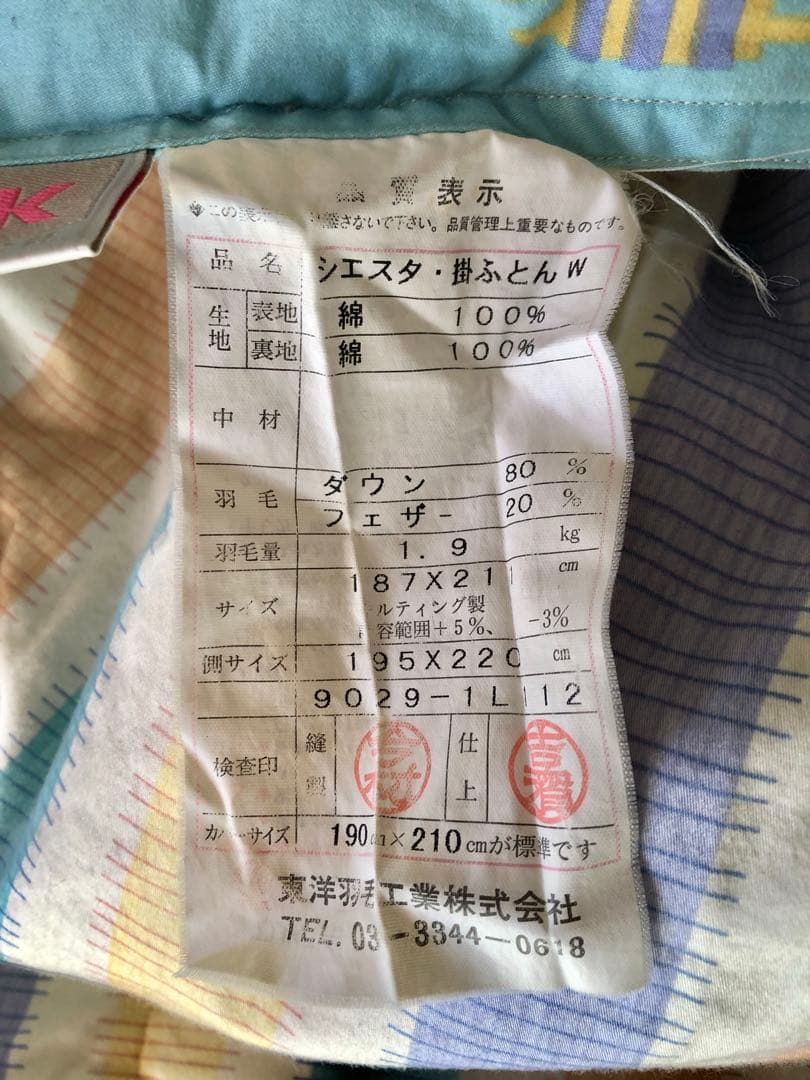 K
品質表示
この表示 さないで下さい。品質管理上重要なものです。
品名 シエスタ・掛ふとんW
生地 表地 綿 100%
裏地 綿 100%
中材
羽毛 ダウン 80 %
フェザー 20 %
羽毛量 1.9 kg
サイズ 187X211 cm
ルティング製
容範囲+5%、 -3%
側サイズ 195X220 cm
9029-1L112
検査印 縫製 仕上
カバーサイズ 190cm×210cmが標準です
東洋羽毛工業株式会社
TEL. 03-3344-0618